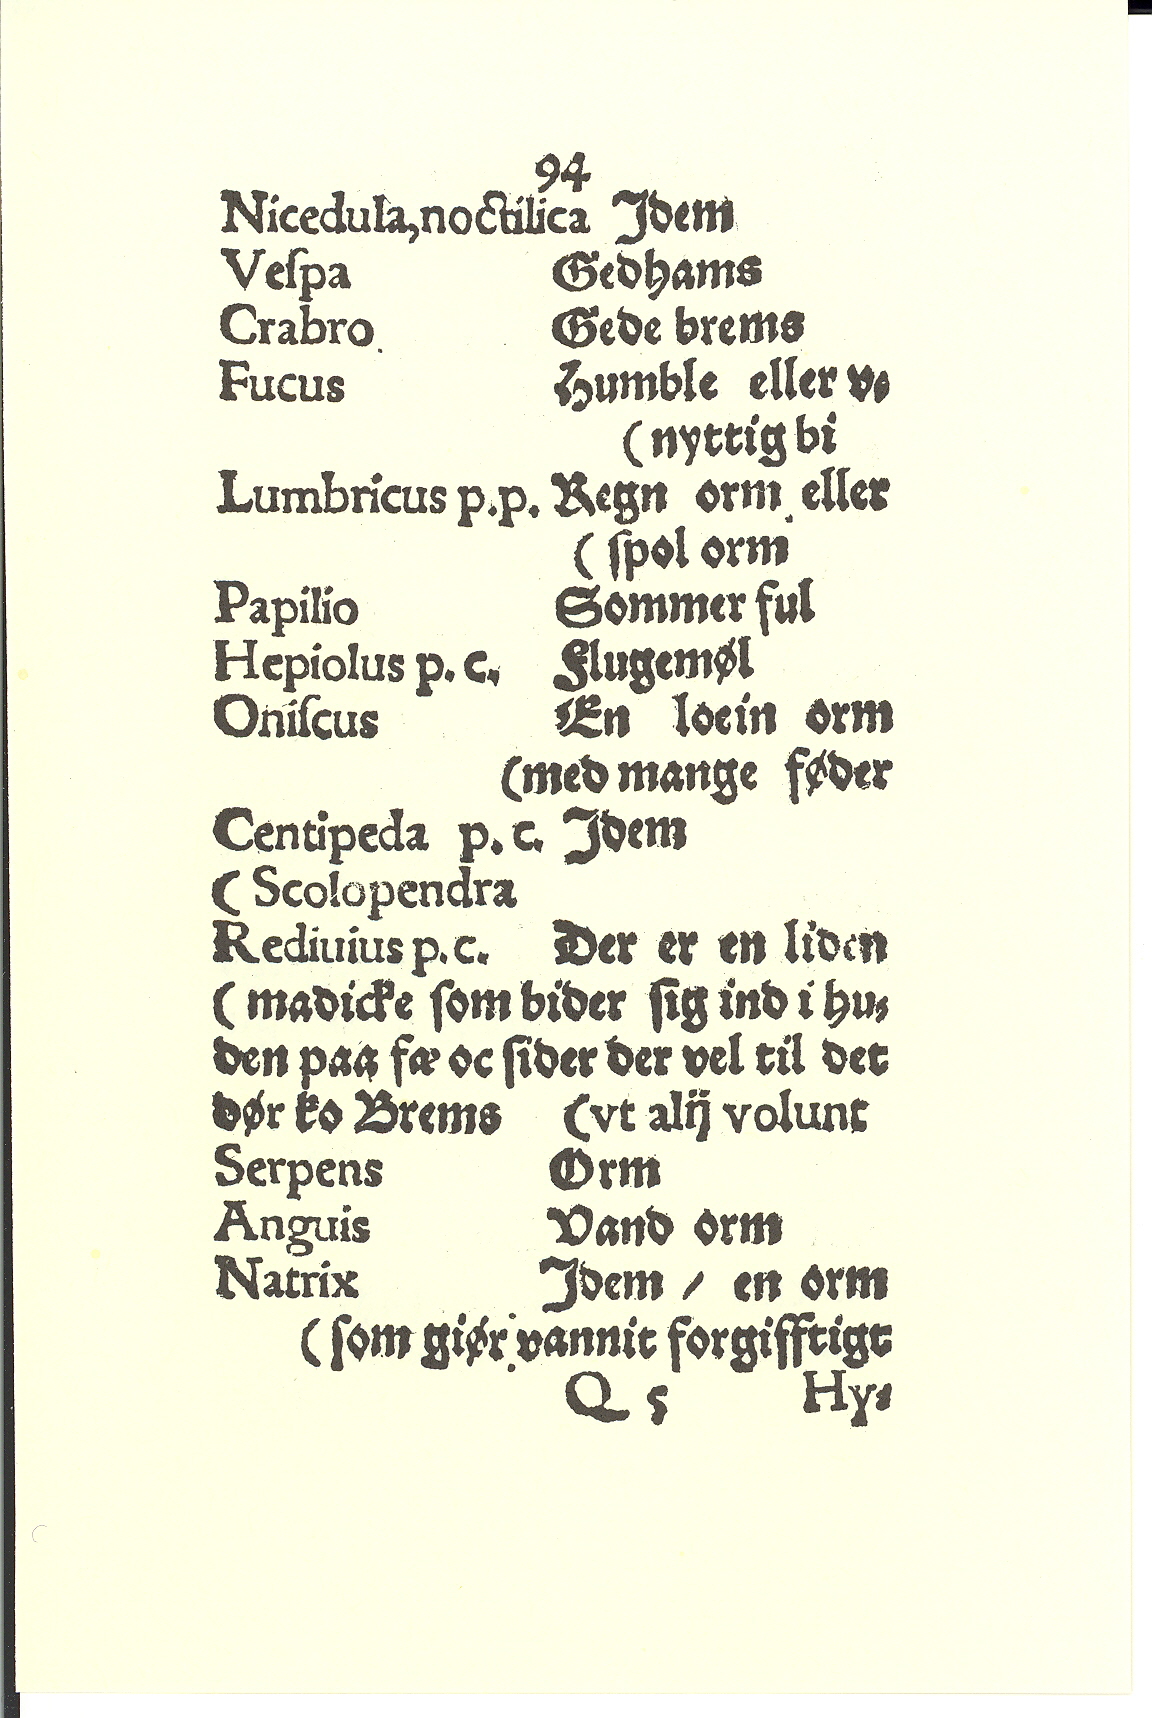 94
Nicedula,noctilica Jdem
Veſpa Gedhams
Crabro Gede brems
Fucus Humble eller v⸗
(nyttig bi
Lumbricus p.p. Regn orm eller
( ſpol orm
Papilio Sommer ful
Hepiolus p. c. Flugemøl
Oniſcus En loein orm
(med mange føder
Centipeda p. c. Jdem
( Scolopendra
Rediuius p. c. Der er en liden
( madicke ſom bider ſig ind i hu⸗
den paa fæ oc ſider der vel til det
dør ko Brems (vt alij volunt
Serpens Orm
Anguis Vand orm
Natrix Jdem / en orm
( ſom giør vannit forgifftigt
Q 5 Hy⸗